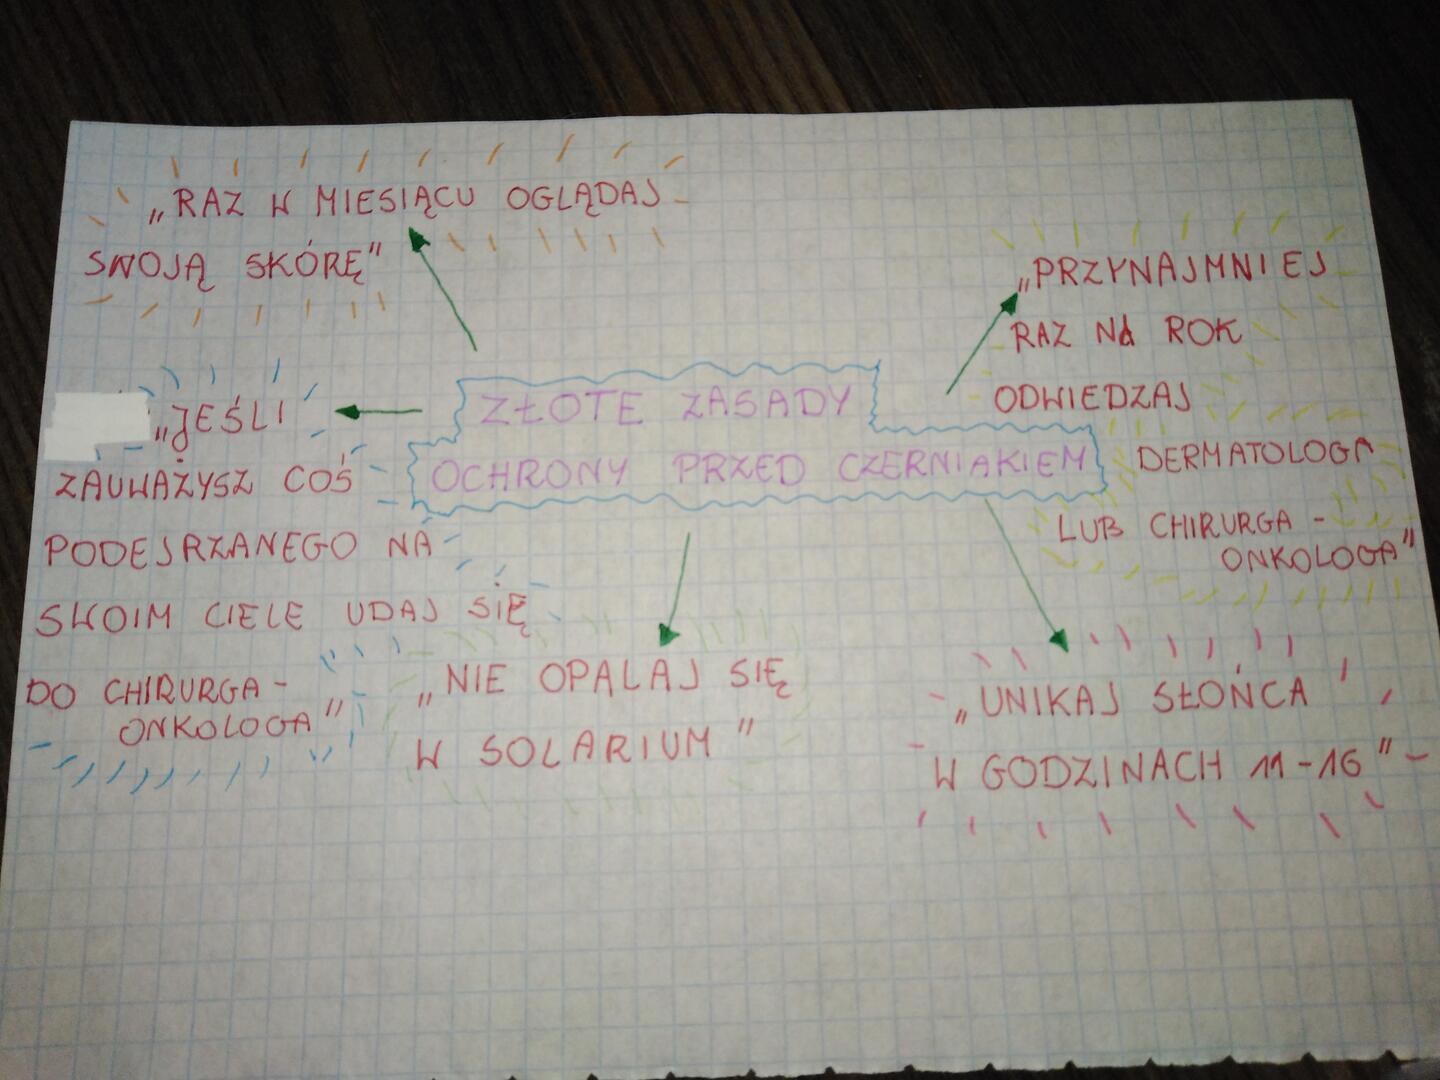 „RAZ W MIESIĄCU OGLĄDAJ
SWOJĄ SKÓRĘ”
„PRZYNAJMNIEJ
RAZ NA ROK
ODWIEDZAJ
DERMATOLOGA
LUB CHIRURGA -
ONKOLOGA”
ZŁOTE ZASADY
OCHRONY PRZED CZERNIAKIEM
„JEŚLI
ZAUWAŻYSZ COŚ
PODEJRZANEGO NA
SWOIM CIELE UDAJ SIĘ
DO CHIRURGA -
ONKOLOGA”
„NIE OPALAJ SIĘ
W SOLARIUM”
„UNIKAJ SŁOŃCA
W GODZINACH 11-16”